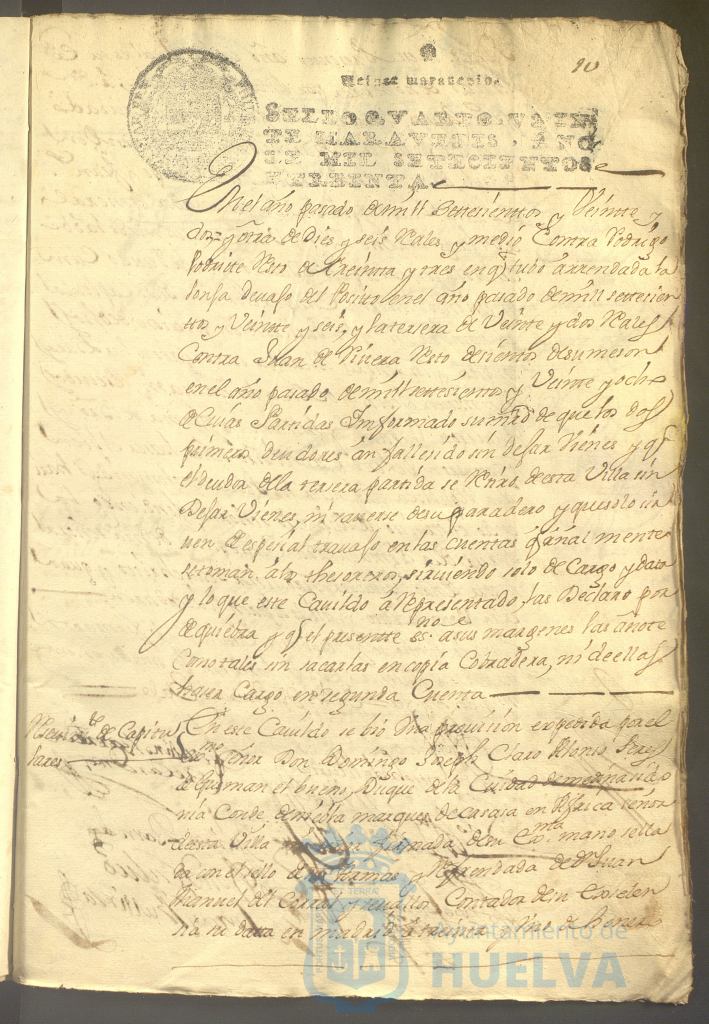 90
Veinte maravedis.
SELLO QVARTO, VEIN
TE MARAVEDIS, AÑO
DE MIL SETECIENTOS
Y TREINTA
En el año pasado de mill settesienttos y Veintte y
dos = otra de Dies y seis Rales y medio Contra Rodrigo
Resto de treintta y tres en q tubo arrendada la
lonja devajo del Posito en el año pasado de mill settesien
ttos y Veintte y seis, y la tersera de Veintte y dos Rales
Contra Juan de Rivera Resto desientos de su meson
en el año pasado de mill settesientos y Veintte y ocho
de Cuias Partidas Informado su mrd de que los dos
primeros deudores an fallesido sin dejar Vienes y q
el deudor de la tersera partida se Retiro de esta Villa sin
Dejar Vienes, ni saverse de su paradero y que solo sir
ven de espesial travajo en las cuentas q anal mente
se toman a los thesoreros, sirviendo solo de Cargo y data
y lo que este Cavildo a Representado, las Declaro por
de quiebra y q el presentte es.no a sus margenes las anote
Como tales sin sacarlas en copia Cobradera, ni de ellas
hazer Cargo en segunda Cuenta
de Capitu
lares
En este Cavildo se bio Una provision expedida por el
señor Don Domingo Joseph Claro Alonso Peres
de Gusman el bueno, Duque de la Ciudad de medina sido
nia Conde de niebla marques de Casasa en Africa señor
desta Villa firmada de su mano sella
da con el sello de sus Armas y Refrendada de Dn Juan
Manuel del Corral y Contador de su Exselen
sia su data en madrid a treinta y Uno de henero
Ayuntamiento de
HUELVA